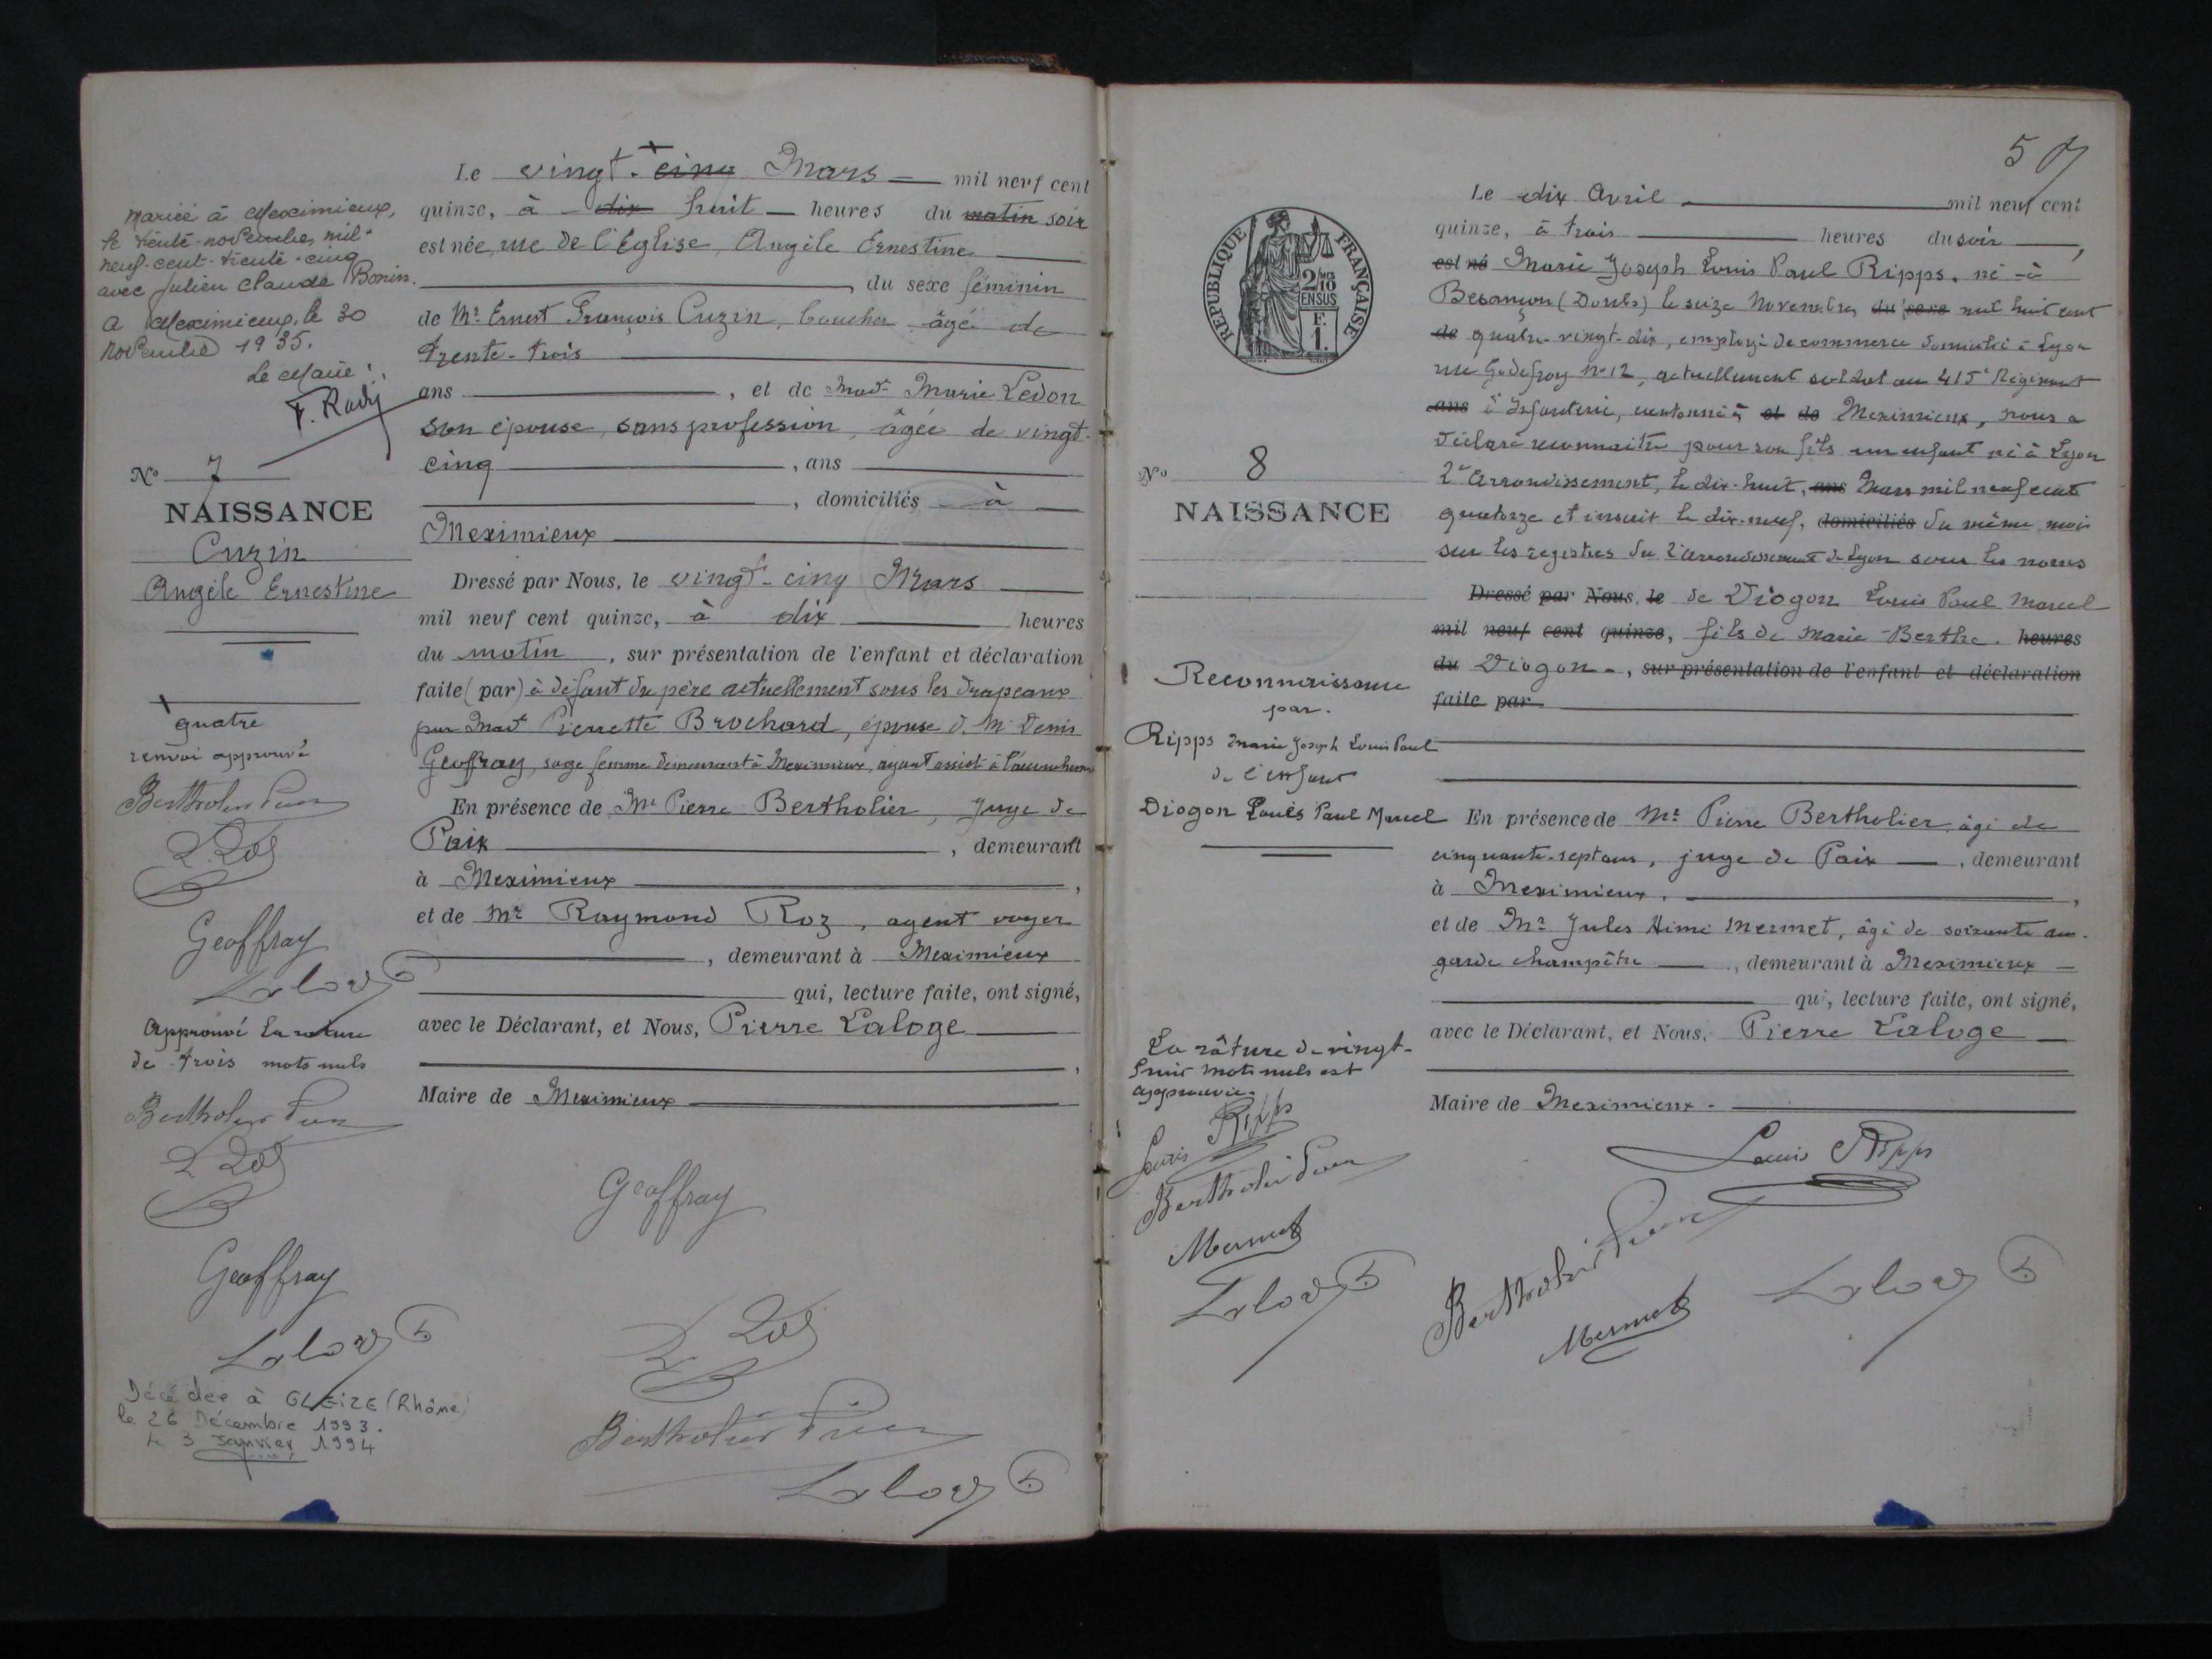 mariée à Meximieux,
le trente novembre mil
neuf-cent-trente-cinq
avec Julien Claude Bonin.
A Meximieux, le 30
Novembre 1935.
Le Maire :
F. Rady
No 7
NAISSANCE
Cuzin
Angèle Ernestine
quatre
renvoi approuvé
Bertholier Pierre
R. Roz
Geoffray
Laloge
Approuvé la rature
de trois mots nuls
Bertholier Pierre
R. Roz
Geoffray
Laloge
Décédée à GLEIZE (Rhône)
le 26 Décembre 1993.
le 3 Janvier 1994
Le vingt-cinq Mars mil neuf cent
quinze, à dix huit heures du matin soir
est née, rue de l'Église, Angèle Ernestine
, du sexe féminin
de Mr. Ernest François Cuzin, boucher âgé de
trente-trois
ans , et de Made Marie Ledon
son épouse, sans profession, âgée de vingt-
cinq , ans
, domiciliés à
Meximieux
Dressé par Nous, le vingt-cinq Mars
mil neuf cent quinze, à dix heures
du matin , sur présentation de l'enfant et déclaration
faite (par) à défaut du père actuellement sous les drapeaux
par Made Pierrette Brochard, épouse d. Mr Denis
Geoffray, sage femme demeurant à Meximieux, ayant assisté à l'accouchement
En présence de Mr Pierre Bertholier, Juge de
Paix , demeurant
à Meximieux ,
et de Mr Raymond Roz, agent voyer
, demeurant à Meximieux
qui, lecture faite, ont signé,
avec le Déclarant, et Nous, Pierre Laloge
,
Maire de Meximieux
Geoffray
R. Roz
Bertholier Pierre
Laloge
50
REPUBLIQUE FRANÇAISE
2/10
EN SUS
F.
1.
No 8
NAISSANCE
Reconnaissance
par.
Ripps Marie Joseph Louis Paul
de l'enfant
Diogon Louis Paul Marcel
La râture de vingt-
huit mots nuls est
approuvée.
Louis Ripps
Bertholier Pierre
Mermet
Laloge
Le dix Avril mil neuf cent
quinze, à trois heures du soir ,
est né Marie Joseph Louis Paul Ripps, né à
Besançon (Doubs) le seize Novembre, du sexe mil huit cent
de quatre-vingt-dix, employé de commerce domicilié à Lyon
rue Godefroy No 12, actuellement soldat au 415e Régiment
ans d'Infanterie, cantonné à et de Meximieux, nous a
déclaré reconnaitre pour son fils un enfant né à Lyon
2e Arrondissement, le dix-huit, ans Mars mil neuf cent
quatorze et inscrit le dix-neuf, domiciliés du même mois
sur les registres du 2e arrondissement de Lyon sous les noms
Dressé par Nous, le de Diogon Louis Paul Marcel
mil neuf cent quinze, fils de Marie-Berthe heures
du Diogon , sur présentation de l'enfant et déclaration
faite par
En présence de Mr. Pierre Bertholier, âgé de
cinquante-sept ans, juge de Paix , demeurant
à Meximieux. ,
et de Mr. Jules Aimé Mermet, âgé de soixante ans.
garde champêtre , demeurant à Meximieux
qui, lecture faite, ont signé,
avec le Déclarant, et Nous, Pierre Laloge
Maire de Meximieux.
Louis Ripps
Bertholier Pierre
Mermet
Laloge